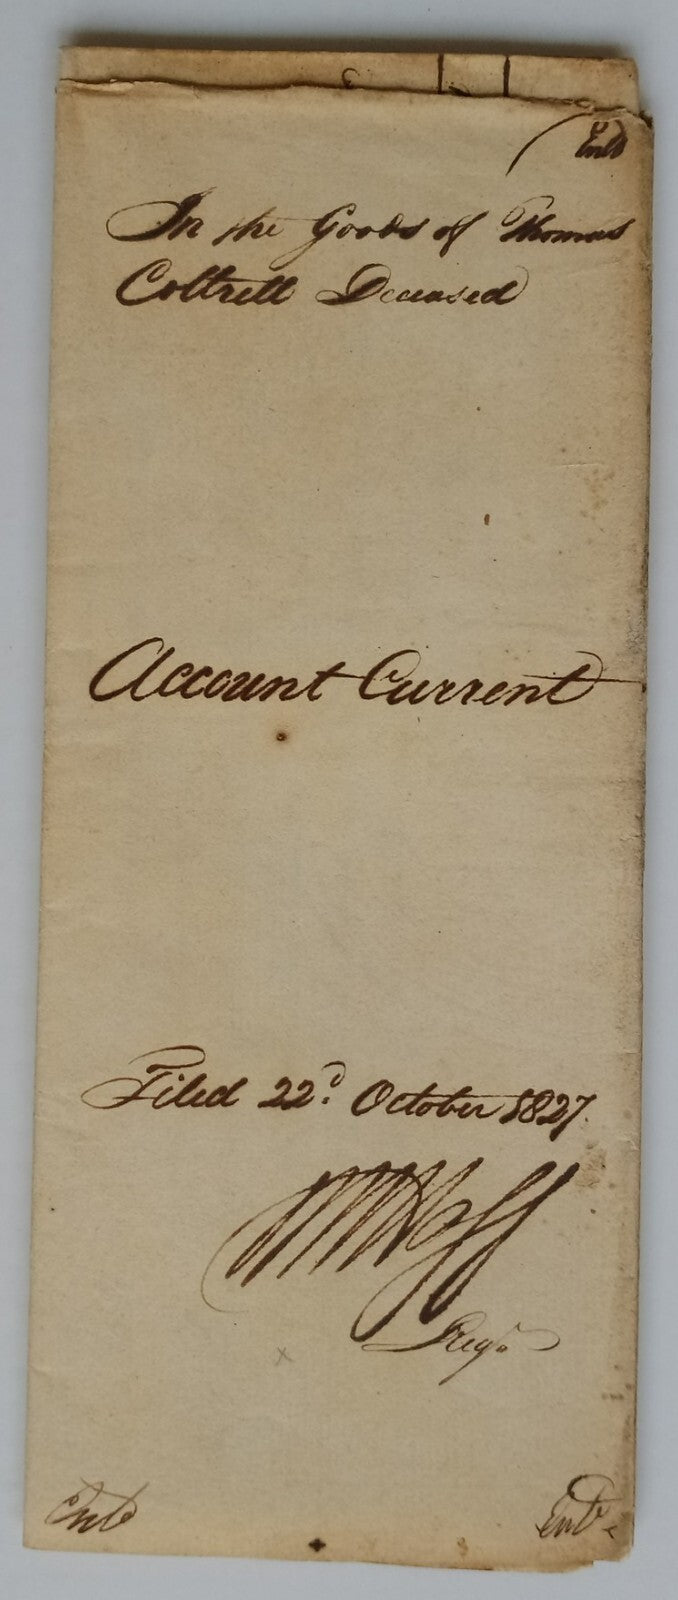 Entd
In the Goods of Thomas
Coltrell Deceased
Account Current
Filed 22d. October 1827.
Regr.
Entd
Entd